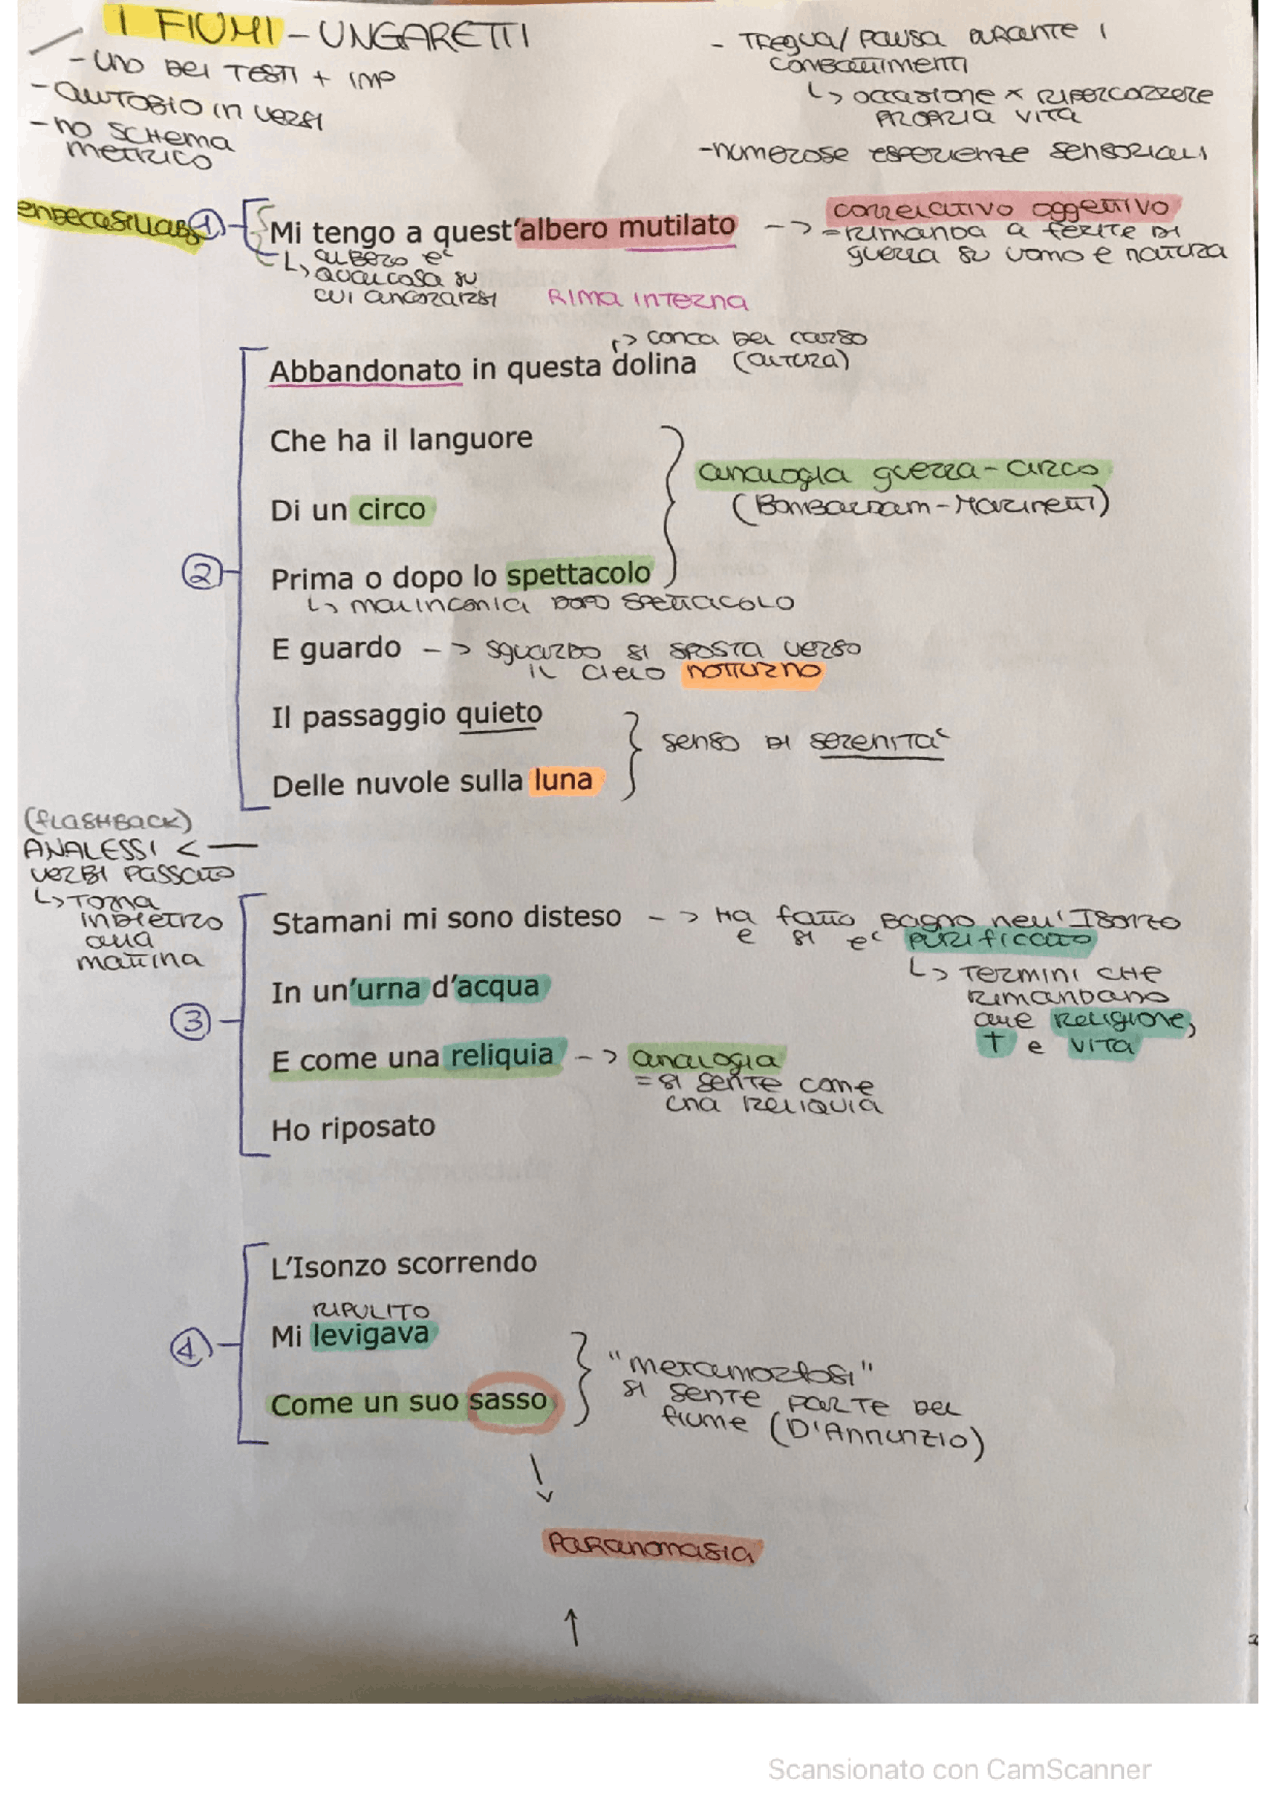 I FIUMI - UNGARETTI
- UNO DEI TESTI + IMP
- AUTOBIO IN VERSI
- NO SCHEMA
METRICO
- TREGUA/PAUSA DURANTE I
COMBATTIMENTI
↳ OCCASIONE x RIPERCORRERE
PROPRIA VITA
- NUMEROSE ESPERIENZE SENSORIALI
ENDECASILLABO
1
Mi tengo a quest'albero mutilato --> CORRELATIVO OGGETTIVO
= RIMANDA A FERITE DI
GUERRA SU UOMO E NATURA
↳ ALBERO E'
QUALCOSA SU
CUI ANCORARSI
RIMA INTERNA
↱ CONCA DEL CARSO
(ALTURA)
Abbandonato in questa dolina
Che ha il languore
ANALOGIA GUERRA-CIRCO
Di un circo
(BOMBARDAM-MARINETTI)
2
Prima o dopo lo spettacolo
↳ MALINCONIA DOPO SPETTACOLO
E guardo --> SGUARDO SI SPOSTA VERSO
IL CIELO NOTTURNO
Il passaggio quieto
SENSO DI SERENITA'
Delle nuvole sulla luna
(FLASHBACK)
ANALESSI <—
VERBI PASSATO
↳ TORNA
INDIETRO
ALLA
MATTINA
Stamani mi sono disteso --> HA FATTO BAGNO NELL'ISONZO
E SI E' PURIFICATO
In un'urna d'acqua
↳ TERMINI CHE
RIMANDANO
ALLE RELIGIONE,
† E VITA
3
E come una reliquia --> ANALOGIA
= SI SENTE COME
UNA RELIQUIA
Ho riposato
L'Isonzo scorrendo
RIPULITO
4
Mi levigava
"METAMORFOSI"
SI SENTE PARTE DEL
FIUME (D'ANNUNZIO)
Come un suo sasso
PARANOMASIA
Scansionato con CamScanner